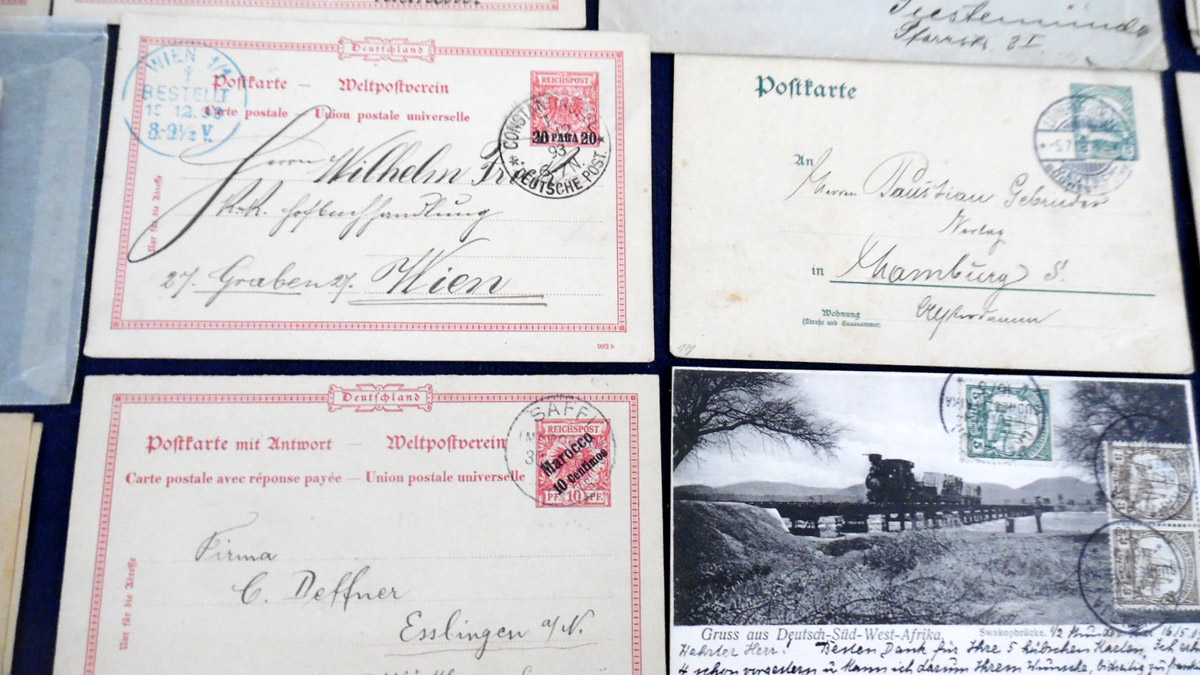 Geestemünde
Pfarrstr. 3 I.
Deutschland
WIEN 1/1
1
BESTELLT
15 12.93
8-9½ V.
Postkarte — Weltpostverein
Carte postale — Union postale universelle
REICHSPOST
20 PARA 20
CONSTANTINOPEL
93
DEUTSCHE POST.
Herrn Wilhelm
K.K. Hofbuchhandlung
27. Graben 27. Wien
Nur für die Adresse
992 b
Postkarte
An
Herrn Paustian Gebrüder
Verlag
in Hamburg
Wohnung
(Straße und Hausnummer)
Deutschland
Postkarte mit Antwort — Weltpostverein
Carte postale avec réponse payée — Union postale universelle
SAFFI
REICHSPOST
Marocco
10 centimos
PF. 10 PF.
Firma
C. Deffner
Esslingen a/N.
Nur für die Adresse
Gruss aus Deutsch-Süd-West-Afrika.
Swakopbrücke.
Wehrter Herr! Besten Dank für Ihre 5 hübschen Karten, Ich
4 schon vorgestern u kann ich darum Ihrem Wunsche,